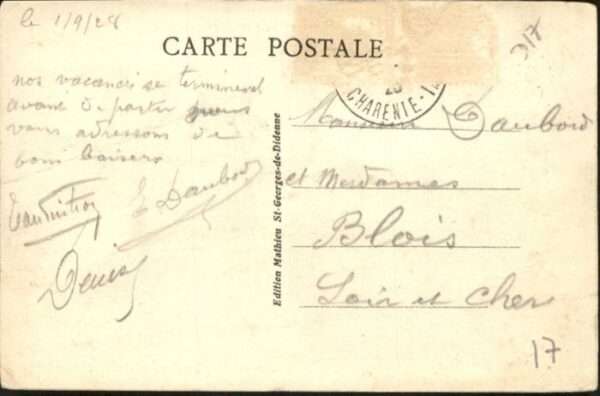 le 1/9/28
CARTE POSTALE
nos vacances se terminent
avant de partir nous
vous adressons de
bons baisers
E Daubord
Denise
Edition Mathieu St-Georges-de-Didonne
28
CHARENTE-I
Monsieur Daubord
et Mesdames
Blois
Loir et Cher
317
17